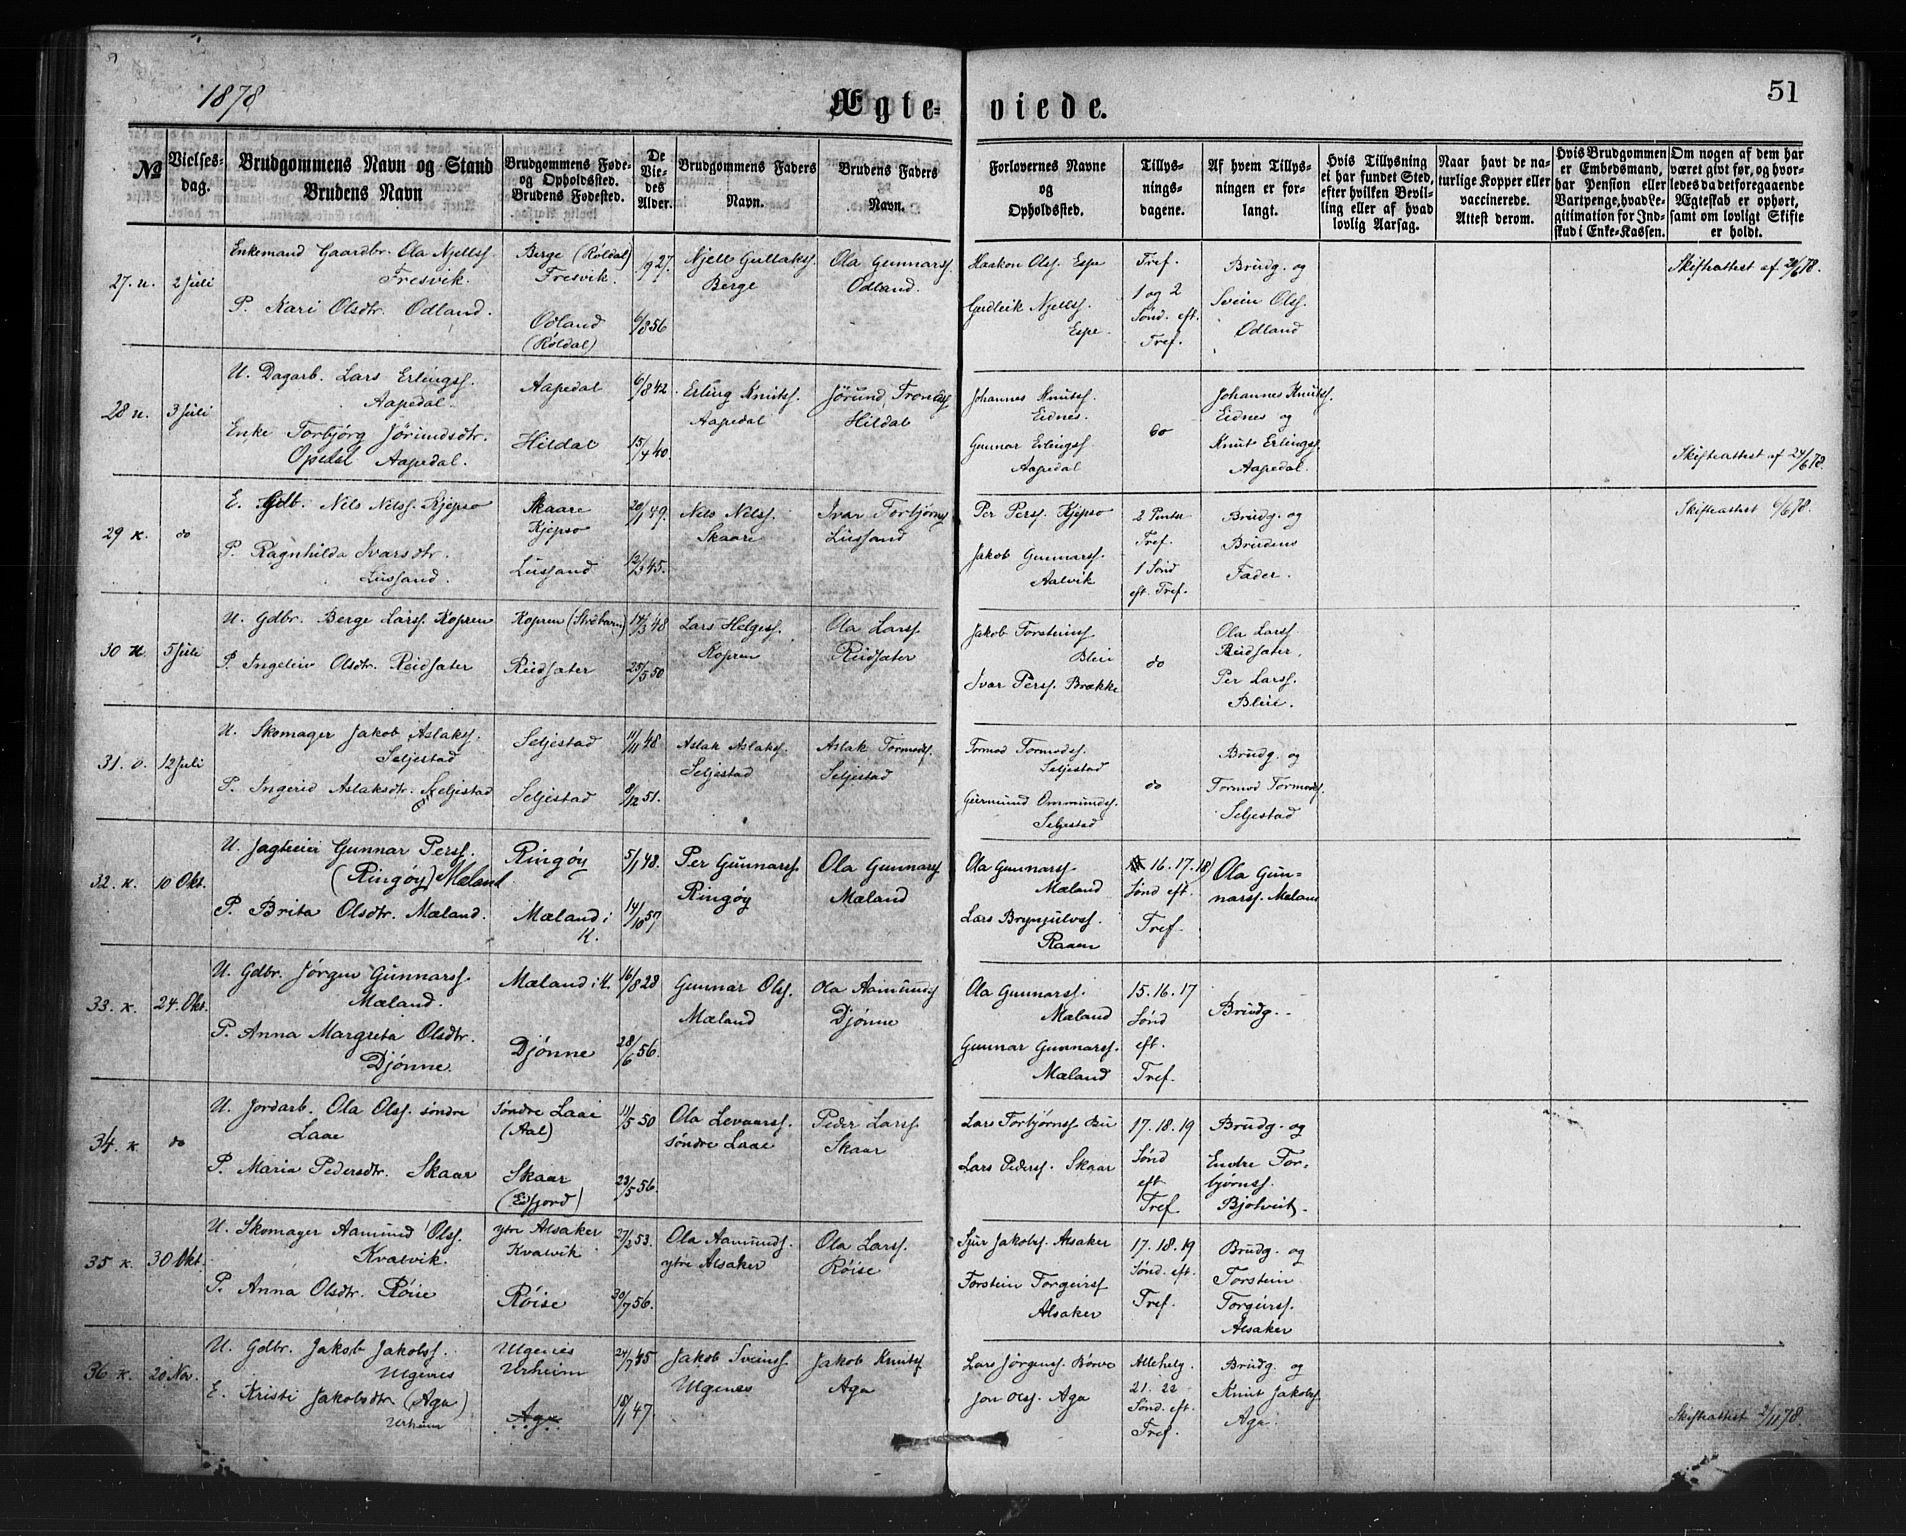 1878
Ægte-
viede.
51
№
Vielses-
dag.
Brudgommens Navn og Stand
Brudens Navn
Brudgommens Føde-
og Opholdssted.
Brudens Fødested.
De
Vie-
des
Alder.
Brudgommens Faders
Navn.
Brudens Faders
og
Navn.
Forlovernes Navne
og
Opholdssted.
Tillys-
nings-
dagene.
Af hvem Tillys-
ningen er for-
langt.
Hvis Tillysning
ei har fundet Sted,
efter hvilken Bevil-
ling eller af hvad
lovlig Aarsag.
Naar havt de na-
turlige Kopper eller
vaccinerede.
Attest derom.
Hvis Brudgommen
er Embedsmand,
har Pension eller
Vartpenge, hvad Le-
gitimation for Ind-
skud i Enke-Kassen.
Om nogen af dem har
været givt før, og hvor-
ledes da det foregaaende
Ægteskab er ophørt,
samt om lovligt Skifte
er holdt.
27. u. 2 Juli
Enkemand Gaardbr. Ola Njellss.
Fresvik.
P. Kari Olsdtr. Odland.
Berge (Røldal)
Fresvik.
Odland
(Røldal)
6/8 56
Njell Gullakss.
Berge
Ola Gunnarss.
Odland.
Haakon Olss. Espe
Gudleik Njellss.
Espe.
Tref.
1 og 2
Sønd. eft.
Tref.
Brudg. og
Svein Olss.
Odland
Skifteattest af 20/6 78.
28 u. 3 Juli
U. Dagarb. Lars Erlingss.
Aapedal.
Enke Torbjørg Jørundsdtr.
Opedal Aapedal.
Aapedal
Hildal
6/8 42.
15/4 40.
Erling Knutss.
Aapedal
Jørund Trondss
Hildal
Johannes Knutss.
Eidnes.
Gunnar Erlingss.
Aapedal
do
Johannes Knutss.
Eidnes og
Knut Erlingss.
Aapedal.
Skifteattest af 24/6 78.
29 k. do
E. Gdb. Nils Nilss. Kjepso
P. Ragnhilda Ivarsdtr.
Lussand.
Skaare
Kjepso
Lussand
20/1 49.
12/3 45.
Nils Nilss.
Skaare
Ivar Torbjørns
Lussand
Per Perss. Kjepso
Jakob Gunnarss.
Aalvik
2 Pintse
Tref.
1 Sønd
eft. Tref.
Brudg. og
Brudens
Fader.
Skifteattest 6/6 78.
30 u. 5 Juli
U. Gdbr. Berge Larss. Kopren
P. Ingeleiv Olsdtr. Reidsæter
Kopren (Strebarm)
Reidsæter
14/3 48
25/5 50
Lars Helgess.
Kopren
Ola Larss.
Reidsæter
Jakob Torsteinss.
Bleie
Ivar Perss. Brække
do
Ola Larss.
Reidsæter,
Per Larss.
Bleie.
31. o. 12 Juli
U. Skomager Jakob Aslakss.
Seljestad
P. Ingerid Aslaksdtr. Seljestad
Seljestad
Seljestad
11/11 48
8/12 51.
Aslak Aslakss.
Seljestad
Aslak Tormodss.
Seljestad
Tormod Tormodss.
Seljestad
Gurmund Ommundss.
Seljestad
do
Brudg. og
Tormod Tormodss.
Seljestad
32. k. 10 Okt.
U. Jagteeier Gunnar Perss.
(Ringøy) Mæland
P. Brita Olsdtr. Mæland.
Ringøy
Mæland i
K.
5/1 48.
14/10 57
Per Gunnarss.
Ringøy
Ola Gunnarss
Mæland
Ola Gunnarss.
Mæland
Lars Brynjulvss.
Raaen
16. 17. 18)
Sønd eft.
Tref.
Ola Gun-
narss. Mæland
33. k. 24. Okt.
U. Gdbr. Jørgen Gunnarss.
Mæland.
P. Anna Margreta Olsdtr.
Djønne.
Mæland i K.
Djønne
16/8 28
28/6 56.
Gunnar Olss.
Mæland
Ola Aamundss
Djønne
Ola Gunnarss.
Mæland
Gunnar Gunnarss.
Mæland
15. 16. 17
Sønd
eft.
Tref.
Brudg.
34. k. do
U. Jordarb. Ola Olss. søndre
Laae
P. Maria Pedersdtr. Skaar
Søndre Laae
(Aal)
Skaar
(Eidfjord)
11/5 50
23/5 56.
Ola Levaarss.
søndre Laae
Peder Larss.
Skaar
Lars Torbjørnss. Bu
Lars Pederss. Skaar
17. 18. 19
Sønd
eft
Tref.
Brudg. og
Endre Tor-
bjørnss.
Bjotveit.
35 k. 30 Okt.
U. Skomager Aamund Olss.
Kvalvik.
P. Anna Olsdtr. Røise
ytre Alsaker
Kvalvik
Røise
27/3 53.
30/7 56.
Ola Aamundss.
ytre Alsaker
Ola Larss.
Røise
Sjur Jakobss. Alsaker
Torstein Torgeirss
Alsaker
17. 18. 19
Sønd. eft.
Tref.
Brudg. og
Torstein
Torgeirss.
Alsaker
36 k. 20 Nov.
U. Gdbr. Jakob Jakobss.
Ulgenes
E. Kristi Jakobsdtr (Aga)
Urheim
Ulgenes
Urheim
Aga
24/7 45
18/1 47.
Jakob Sveinss.
Ulgenes
Jakob Knutss
Aga
Lars Jørgenss. Børve
Jon Olss. Aga
Allehelg.
21. 22
Sønd. eft.
Tref.
Brudg. og
Knut Jakobss.
Aga.
Skifteattest 2/11 78.